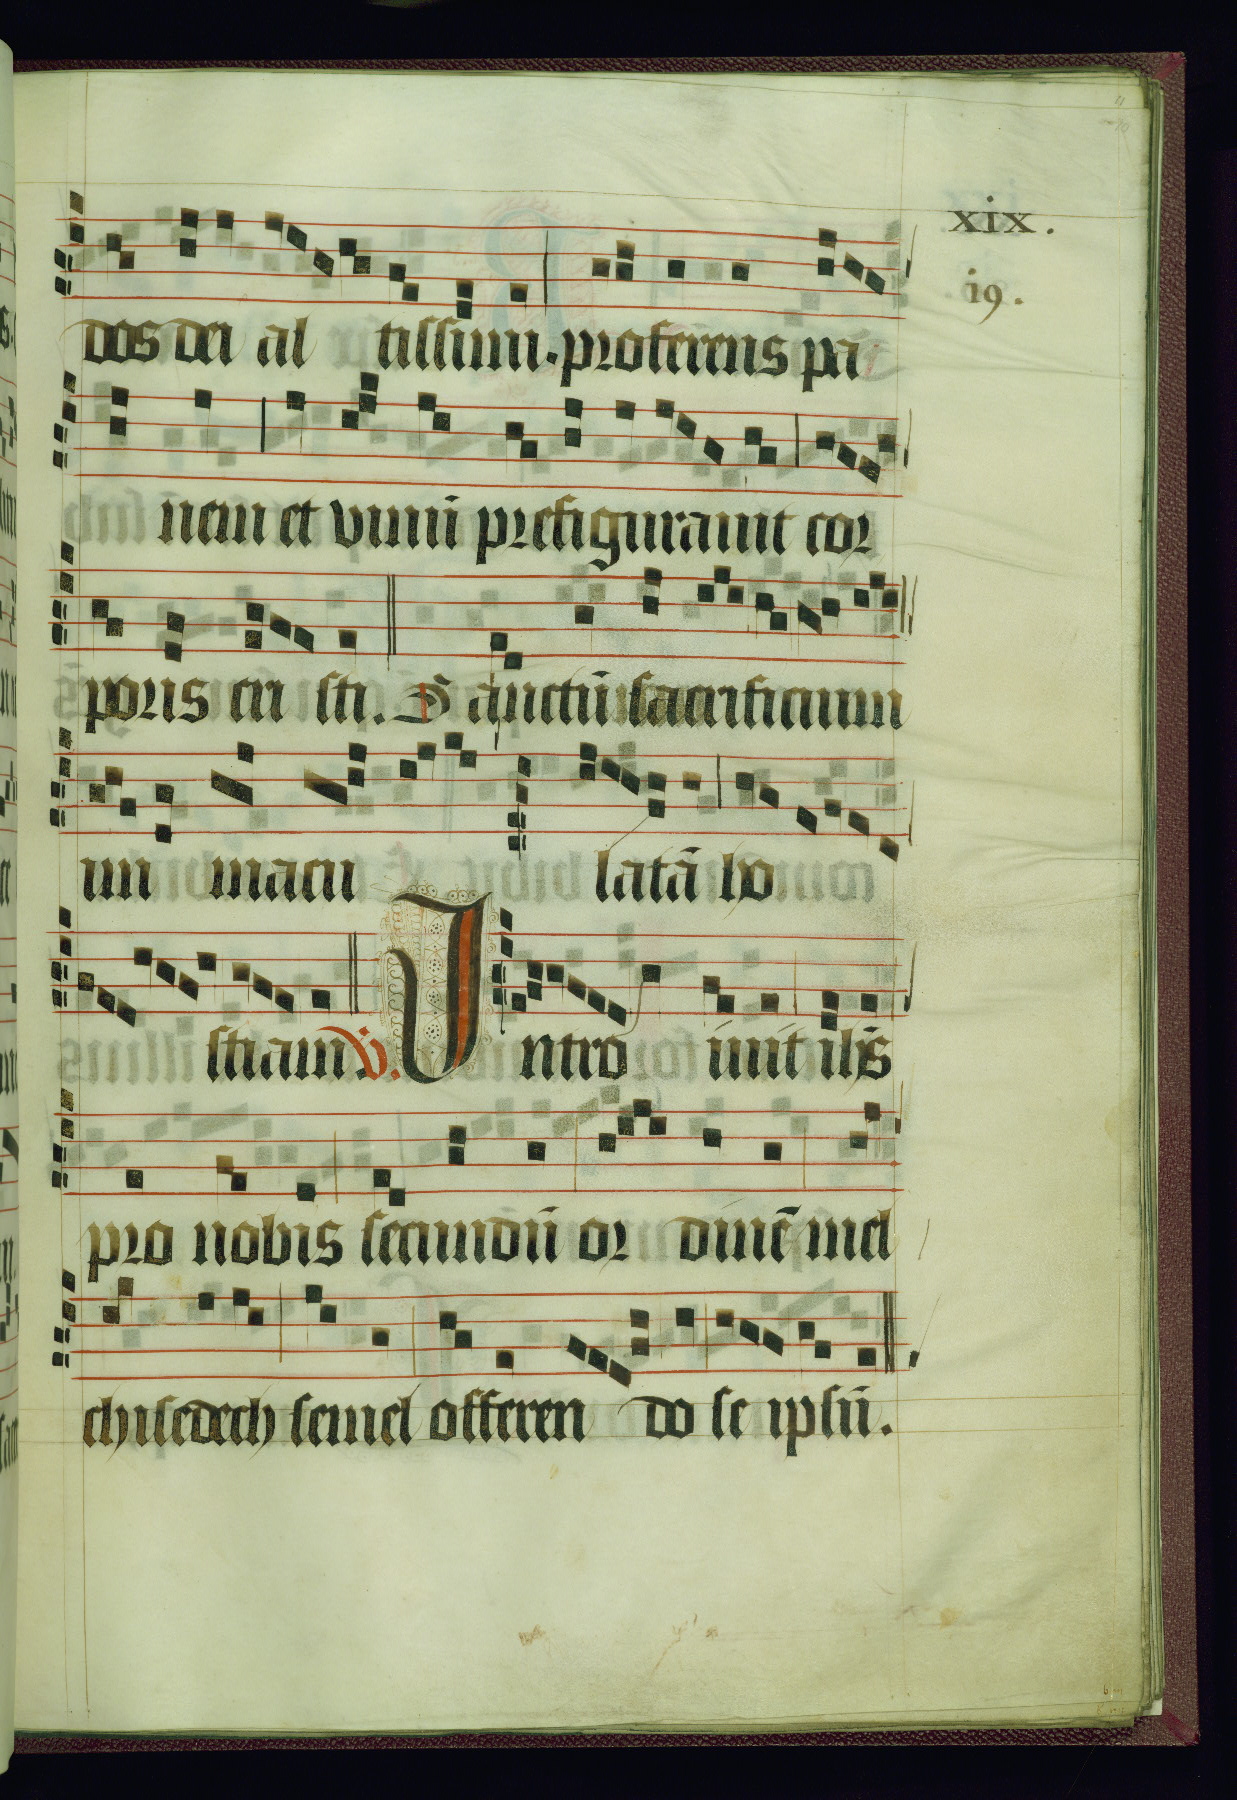 xix.
19.
dos dei al tissimi. proferens pa
nem et vinū prefigurauit cor
poris cri sti. Sanctū sacrificium
im macu latā ho
stiam v. Introiuit ihs̄
pro nobis secundū or dinē mel
chisedech semel offeren do se ipsū.